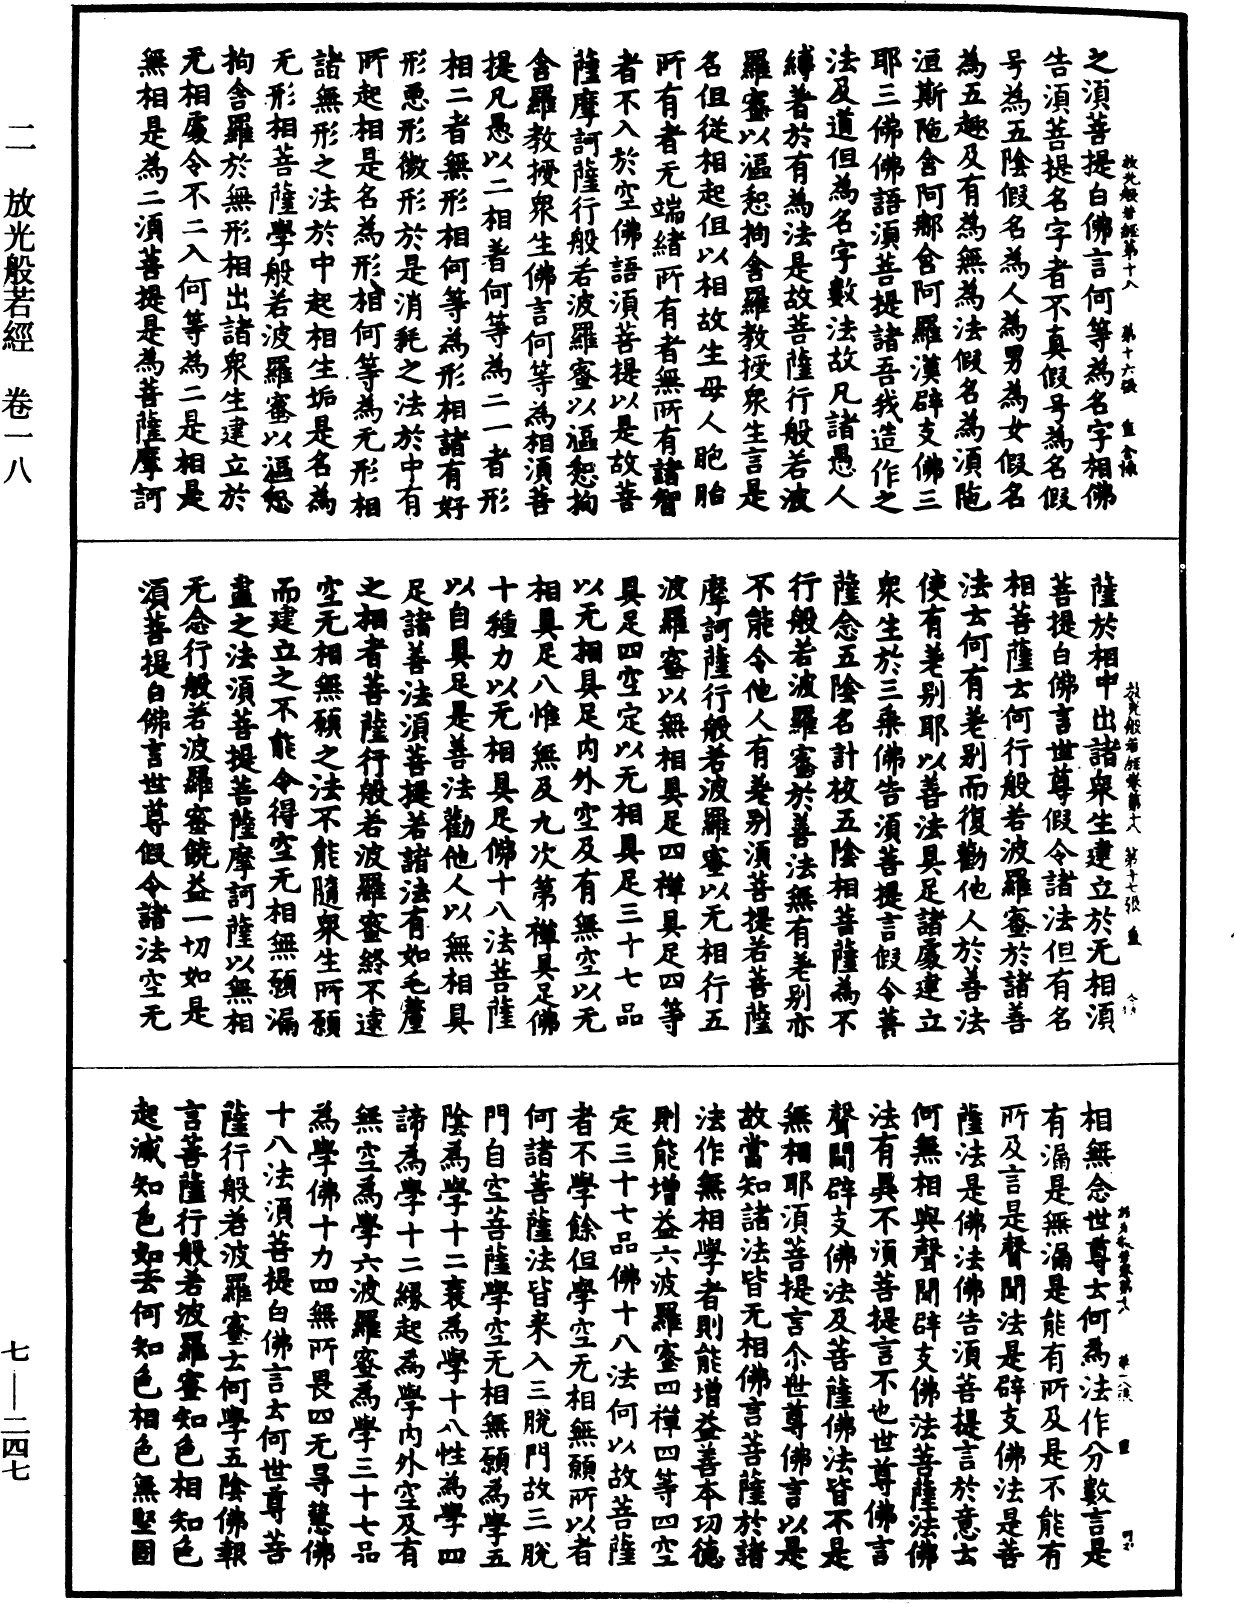 之須菩提白佛言何等為名字相佛
告須菩提名字者不真假号為名假
号為五陰假名為人為男為女假名
為五趣及有為無為法假名為須陁
洹斯陁含阿那含阿羅漢辟支佛三
耶三佛佛語須菩提諸吾我造作之
法及道但為名字數法故凡諸愚人
縛著於有為法是故菩薩行般若波
羅蜜以漚惒拘舍羅教授眾生言是
名但從相起但以相故生母人胞胎
所有者无端緒所有者無所有諸智
者不入於空佛語須菩提以是故菩
薩摩訶薩行般若波羅蜜以漚惒拘
舍羅教授眾生佛言何等為相須菩
提凡愚以二相著何等為二一者形
相二者無形相何等為形相諸有好
形惡形微形於是消耗之法於中有
所起相是名為形相何等為无形相
諸無形之法於中起相生垢是名為
无形相菩薩學般若波羅蜜以漚惒
拘舍羅於無形相出諸眾生建立於
无相處令不二入何等為二是相是
無相是為二須菩提是為菩薩摩訶
放光般若經第十八 第十六張
薩於相中出諸眾生建立於无相須
菩提白佛言世尊假令諸法但有名
相菩薩云何行般若波羅蜜於諸善
法云何有差別而復勸他人於善法
使有差別耶以善法具足諸處建立
眾生於三乘佛告須菩提言假令菩
薩念五陰名計挍五陰相菩薩為不
行般若波羅蜜於善法無有差別亦
不能令他人有差別須菩提若菩薩
摩訶薩行般若波羅蜜以无相行五
波羅蜜以無相具足四禪具足四等
具足四空定以无相具足三十七品
以无相具足內外空及有無空以无
相具足八惟無及九次第禪具足佛
十種力以无相具足佛十八法菩薩
以自具足是善法勸他人以無相具
足諸善法須菩提若諸法有如毛氂
之相者菩薩行般若波羅蜜終不逮
空无相無願之法不能隨眾生所願
而建立之不能令得空无相無願漏
盡之法須菩提菩薩摩訶薩以無相
无念行般若波羅蜜饒益一切如是
須菩提白佛言世尊假令諸法空无
放光般若經卷第十八 第十七張
相無念世尊云何為法作分數言是
有漏是無漏是能有所及是不能有
所及言是聲聞法是辟支佛法是菩
薩法是佛法佛告須菩提言於意云
何無相與聲聞辟支佛法菩薩法佛
法有異不須菩提言不也世尊佛言
聲聞辟支佛法及菩薩佛法皆不是
無相耶須菩提言尒世尊佛言以是
故當知諸法皆无相佛言菩薩於諸
法作無相學者則能增益善本功德
則能增益六波羅蜜四禪四等四空
定三十七品佛十八法何以故菩薩
者不學餘但學空无相無願所以者
何諸菩薩法皆來入三脫門故三脫
門自空菩薩學空无相無願為學五
陰為學十二衰為學十八性為學四
諦為學十二緣起為學內外空及有
無空為學六波羅蜜為學三十七品
為學佛十力四無所畏四无㝵慧佛
十八法須菩提白佛言云何世尊菩
薩行般若波羅蜜云何學五陰佛報
言菩薩行般若波羅蜜知色相知色
起滅知色如云何知色相色無堅固
二 放光般若經 卷一八
七——二四七